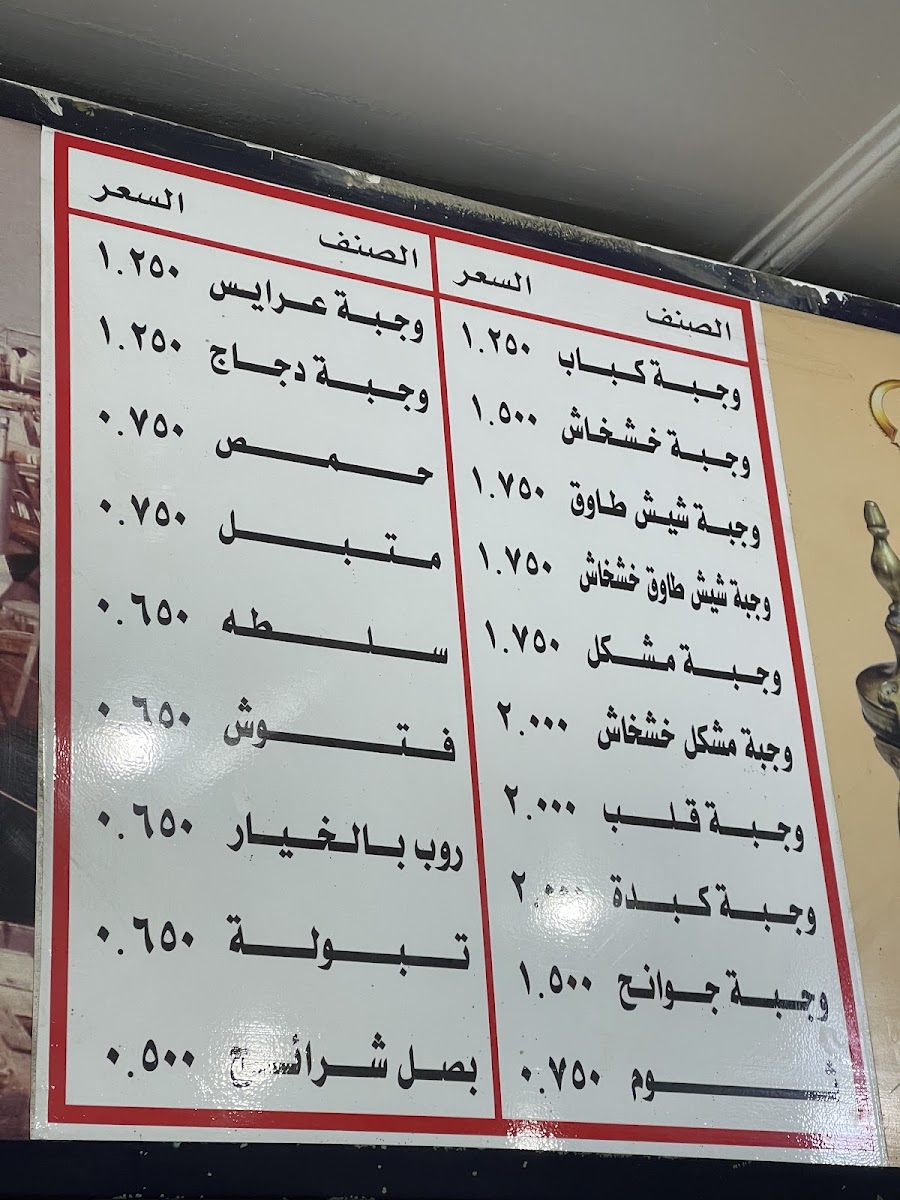 الصنف السعر
وجبة كباب ١.٢٥٠
وجبة خشخاش ١.٥٠٠
وجبة شيش طاوق ١.٧٥٠
وجبة شيش طاوق خشخاش ١.٧٥٠
وجبة مشكل ١.٧٥٠
وجبة مشكل خشخاش ٢.٠٠٠
وجبة قلب ٢.٠٠٠
وجبة كبدة ٢.٠٠٠
وجبة جوانح ١.٥٠٠
ثوم ٠.٧٥٠
الصنف السعر
وجبة عرايس ١.٢٥٠
وجبة دجاج ١.٢٥٠
حمص ٠.٧٥٠
متبل ٠.٧٥٠
سلطه ٠.٦٥٠
فتوش ٠.٦٥٠
روب بالخيار ٠.٦٥٠
تبولة ٠.٦٥٠
بصل شرائح ٠.٥٠٠